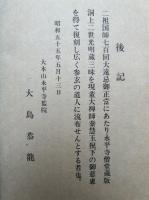 後記
二祖国師七百回大遠忌御正当にあたり永平寺僧堂蔵版
洞上二世光明蔵三昧を現董大禅師秦慧玉猊下の御慈慮
を得て復刻し広く参玄の道人に流布せんとする者也。
昭和五十五年五月十三日
大本山永平寺監院
大島恭龍